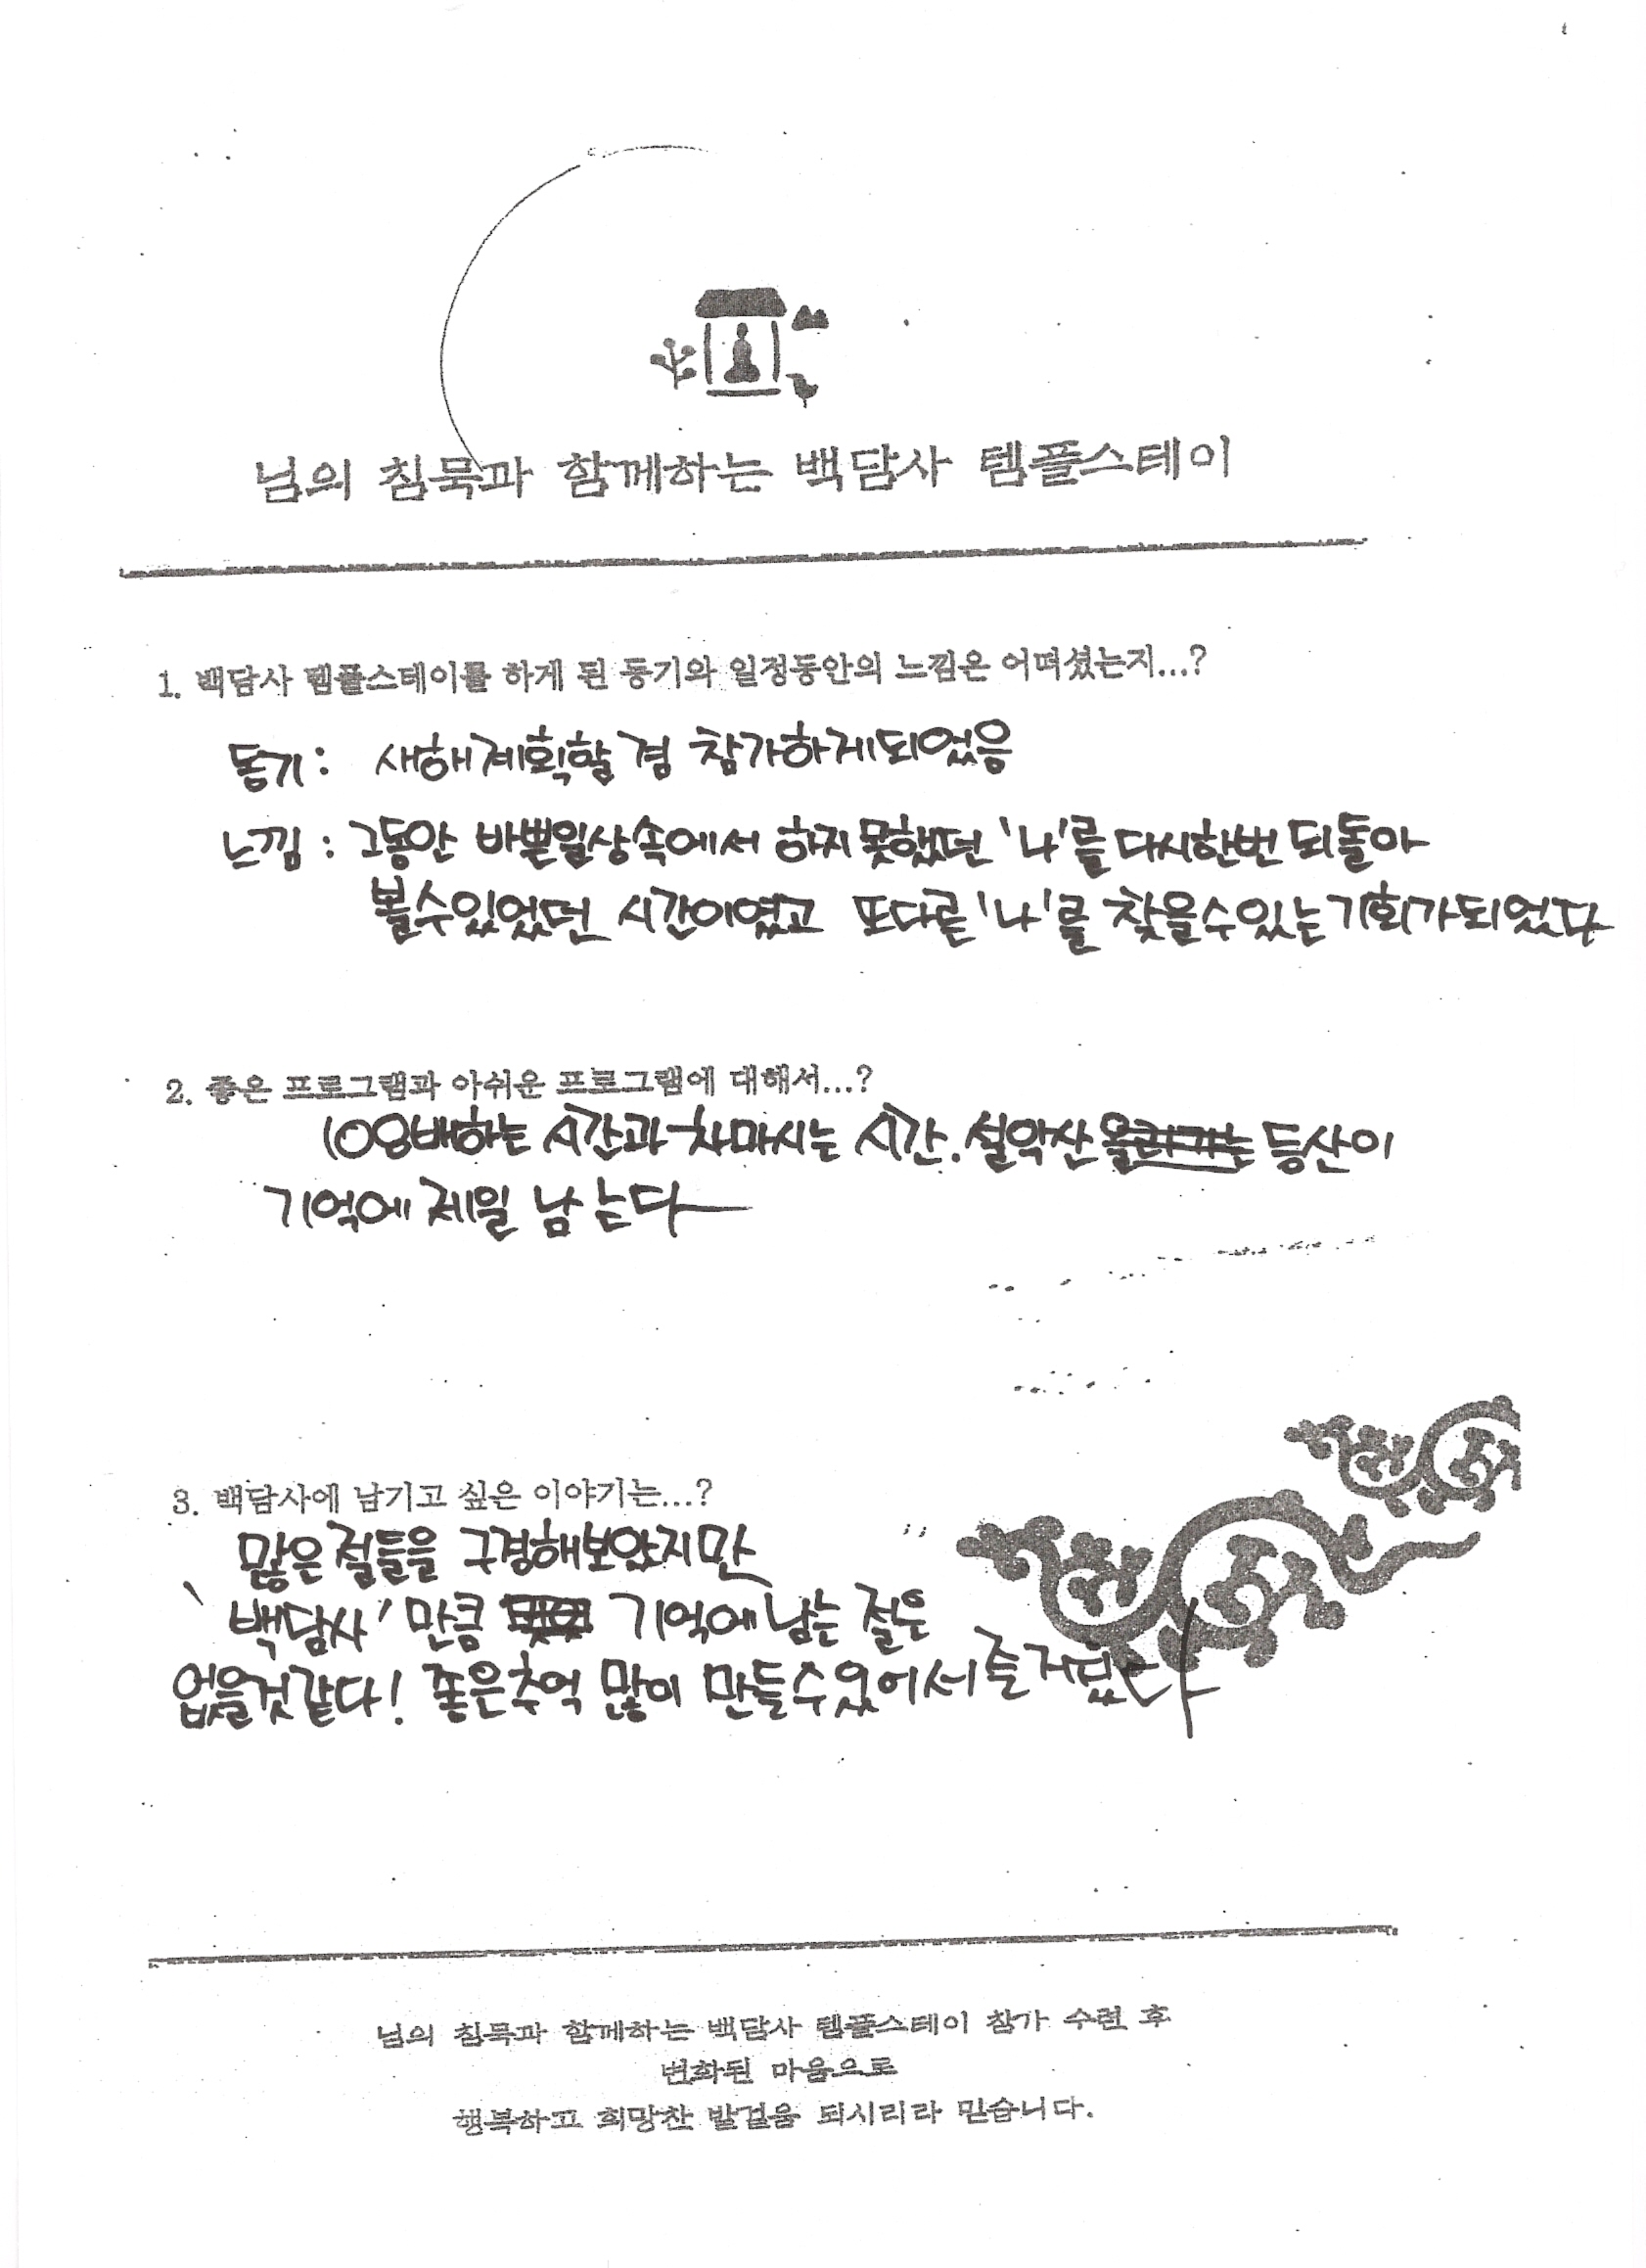 님의 침묵과 함께하는 백담사 템플스테이
1. 백담사 템플스테이를 하게 된 동기와 일정동안의 느낌은 어떠셨는지...?
동기 : 새해계획할 겸 참가하게되었음
느낌 : 그동안 바쁜일상속에서 하지못했던 '나'를 다시한번 되돌아
볼수있었던 시간이였고 또다른 '나'를 찾을수있는기회가되었다
2. 좋은 프로그램과 아쉬운 프로그램에 대해서...?
108배하는 시간과 차마시는 시간. 설악산 올라가는 등산이
기억에 제일 남는다
3. 백담사에 남기고 싶은 이야기는...?
많은 절들을 구경해보았지만
'백담사' 만큼 기억에 남는 절은
없을것같다! 좋은추억 많이 만들수있어서 즐거웠다
님의 침묵과 함께하는 백담사 템플스테이 참가 수련 후
변화된 마음으로
행복하고 희망찬 발걸음 되시리라 믿습니다.